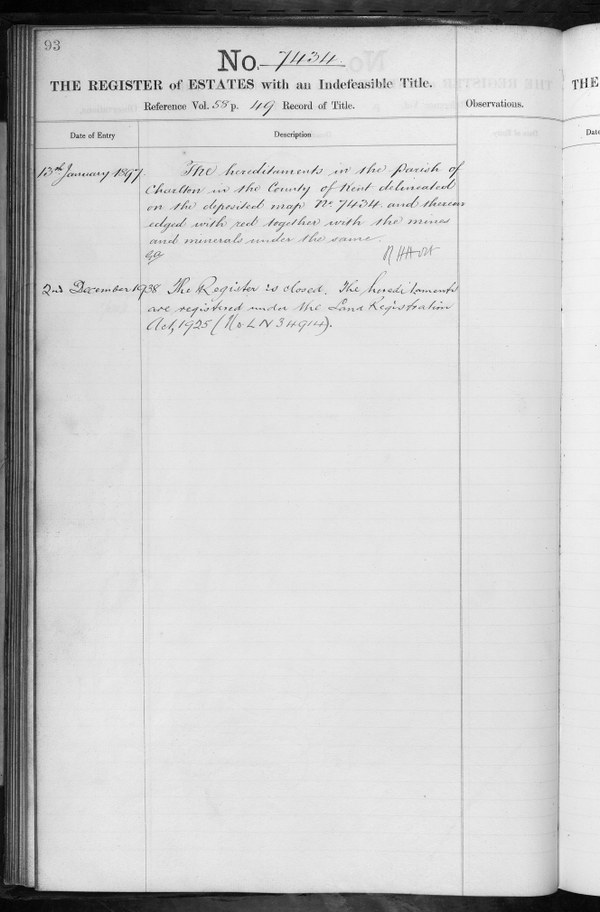 93
No. 7434
THE REGISTER of ESTATES with an Indefeasible Title.
Reference Vol. 58 p. 49 Record of Title.
Observations.
Date of Entry
Description
13th January 1897
The hereditaments in the Parish of
Charlton in the County of Kent delineated
on the deposited map No. 7434 and thereon
edged with red together with the mines
and minerals under the same.
R H Holt
2nd December 1938 The Register is closed. The hereditaments
are registered under the Land Registration
Act, 1925 (No LN 34914).
THE
Date